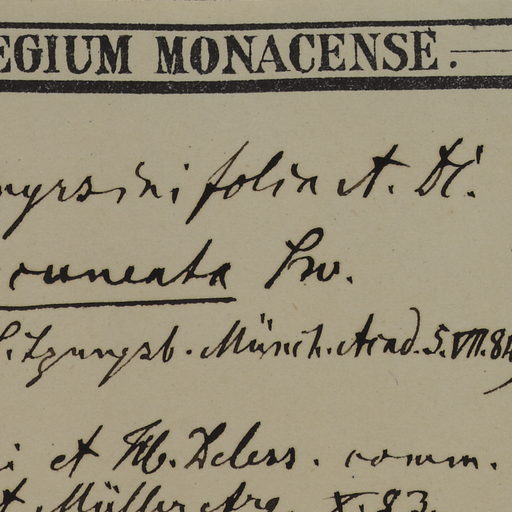 EGIUM MONACENSE.
myrsinifolia A. DC.
cuneata Sw.
Sitzungsb. Münch. Acad. 5. VII. 84
et Hb. Deless. comm.
Müller Arg. X. 83.